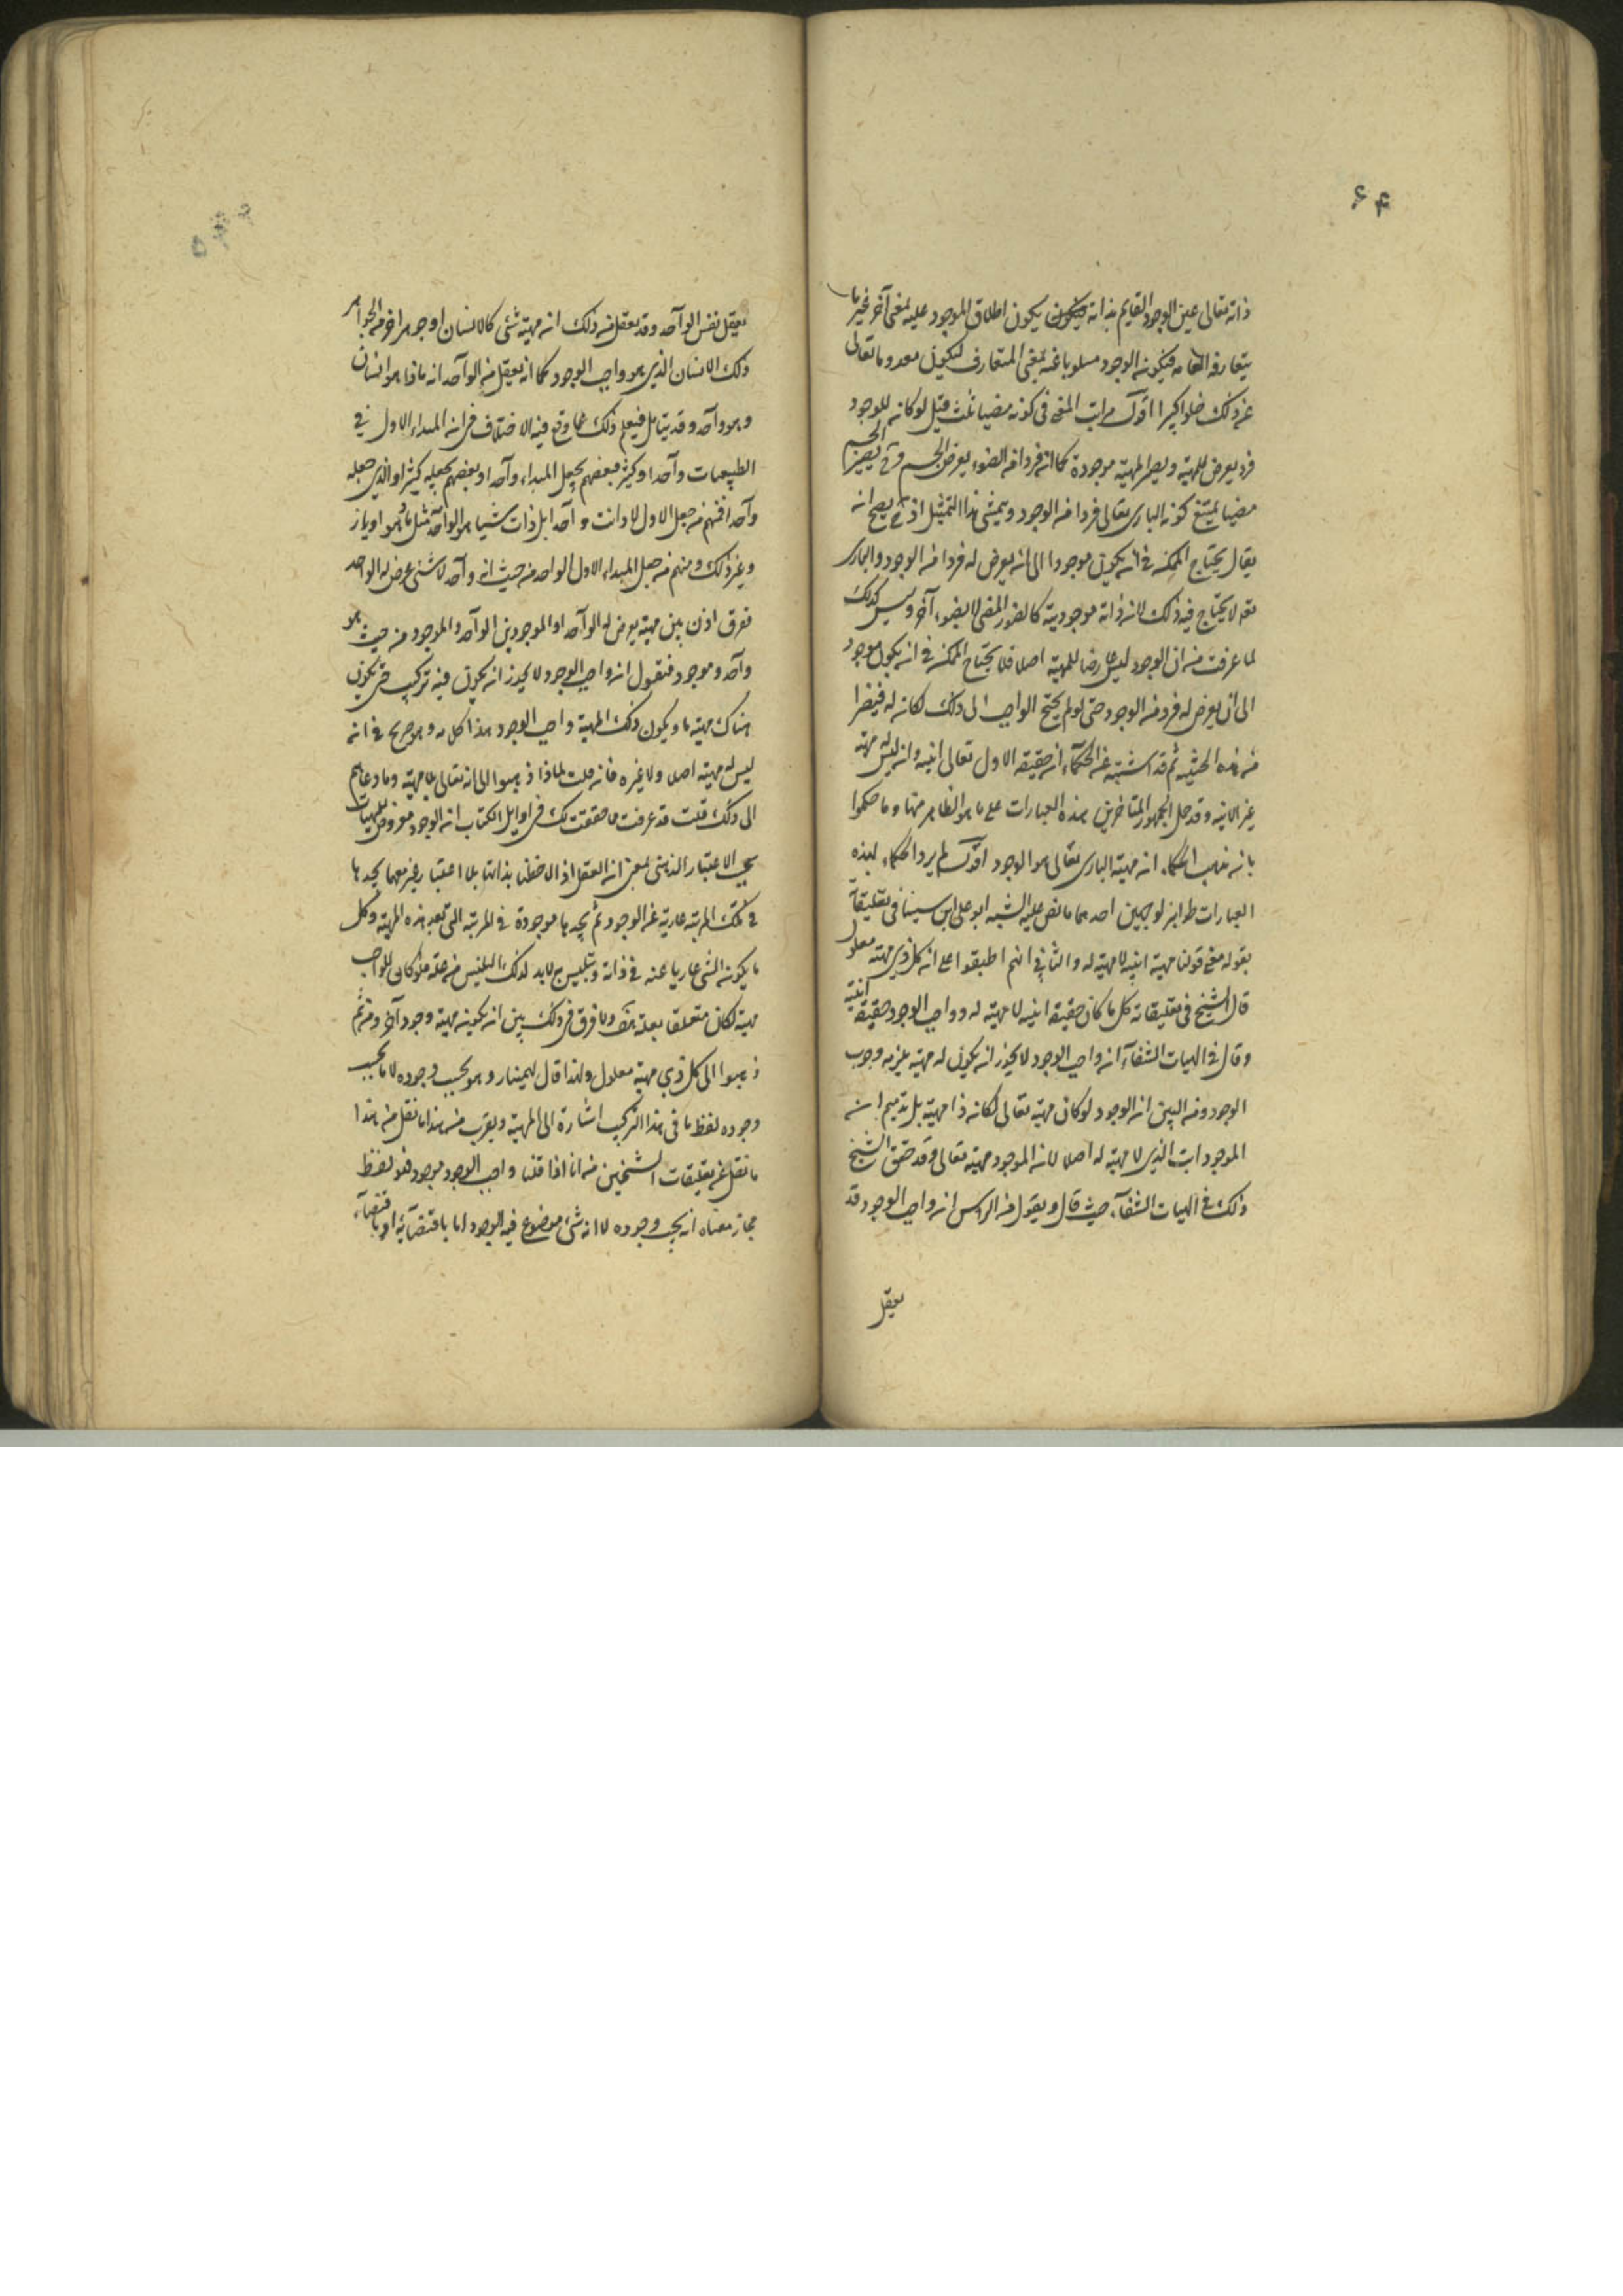 ۶۴
ذاته تعالى عين الوجود القايم بذاته فيكون يكون اطلاق الموجود عليه بمعنى آخر غير ما
يتعارفه العامه فيكون الوجود مسلوبا عنه بمعنى المتعارف ليكون معدوما تعالى
عن ذلك علوا كبيرا اقول مراتب المضى فى كونه مضيا ثلث قيل لو كان للوجود
فرد يعرض للمهية ويصير المهية موجودة كما ان فردا من الضوء يعرض الجسم و يصير الجسم
مضيا يمتنع كون البارى تعالى فردا من الوجود ويمشى هذا التمثيل اذ ح يصح ان
يقال يحتاج الممكن فى ان يكون موجودا الى ان يعرض له فردا من الوجود والبارى
تعه لا يحتاج فيه ذلك لان ذاته موجودية كالضوء المضى لا بضوء آخر وليس كذلك
لما عرفت من ان الوجود ليس عارضا للمهية اصلا فلا يحتاج الممكن فى ان يكون موجود
الى ان يعرض له فرد من الوجود حتى لو لم يحتج الواجب الى ذلك لكان له
من هذه الحيثيه ثم قد اشتبه عن الحكماء ان حقيقة الاول تعالى انيه وانه ليس له مهية
غير الانيه وقد حمل الجمهور المتاخرين هذه العبارات على ما هو الظاهر منها وما حكموا
بان مذهب الحكماء ان مهية البارى تعالى هو الوجود اقول لم يرد الحكماء بهذه
العبارات ظواهر لوجهين احدهما ما نص عليه الشيه ابو على ابن سينا فى تعليقات
بقوله معنى قولنا مهية انيه لا مهيه له والثانى انهم اطبقوا على ان كل ذى مهية معلول
قال الشيخ فى تعليقاته كل ما كان حقيقة انيه لا مهية له وواجب الوجود حقيقة انيته
وقال فى الهيات الشفاء ان واجب الوجود لا يجوز ان يكون له مهية يلزمه وجوب
الوجود ومن البين ان الوجود لو كان مهية تعالى لكان ذا مهية بل
الموجودات الذى لا مهية له اصلا لان الموجود مهية تعالى وقد حقق الشيخ
ذلك فى الهيات الشفاء حيث قال ويقول من الراس ان واجب الوجود قد
يعقل
يعقل نفس الواحد وقد يعقل من ذلك ان مهية شئى كالانسان او جوهر اخر من الجواهر
ذلك الانسان الذى هو واجب الوجود كما انه يعقل من الواحد انه ماذا هو انسان
وهو واحد وقد يتامل فيعلم ذلك مما وقع فيه الاختلاف فى ان المبداء الاول فى
الطبيعيات واحد او كثير فبعضهم يجعل المبداء واحدا وبعضهم يجعله كثيرا والذى جعله
واحدا فمنهم من جعل الاول لا ذات واحد بل ذات شيا هو الواحد مثل ماء او هوا او نار
وغير ذلك ومنهم من جعل المبداء الاول الواحد من حيث انه واحد لا شئى عرض له الواحد
ففرق اذن بين مهية يعرض له الواحد او الموجود بين الواحد والموجود من حيث هو
واحد وموجود فنقول ان واجب الوجود لا يجوز ان يكون فيه تركيب حتى يكون
هناك مهية ما ويكون ذلك المهية واجب الوجود هذا كلامه وهو صريح فى انه
ليس له مهية اصلا ولا غيره فان قلت لماذا ذهبوا الى انه تعالى بلا مهية وما دعاهم
الى ذلك قلت قد عرفت مما حققت لك فى اوايل الكتاب ان الوجود معروض للمهيات
بحسب الاعتبار الذهنى بمعنى ان العقل اذا لاحظها بذاتها بلا اعتبار غير معها يجدها
فى تلك المرتبة عارية عن الوجود ثم يجدها موجودة فى المرتبة التى تعبد هذه المهية وكل
ما يكون الشى عاريا عنه فى ذاته وتلبس به لابد لذلك التلبس من علة فلو كان للواجب
مهية لكان متعلقا بعلة هف ولا فرق فى ذلك بين ان يكون مهية وجود آخر ومن ثم
ذهبوا الى كل ذى مهية معلول ولهذا قال بهمنيار وهو بحسب وجوده لا ما بحسب
وجوده لفظ ما فى هذا التركيب اشارة الى المهية ويقرب من هذا ما نقل من هذا
ما نقل عن تعليقات الشيخين من انا اذا قلنا واجب الوجود موجود فهو لفظ
مجاز معناه انه يجب وجوده لا انه شئ موضوع فيه الوجود اما باقتضائه او باقتضاء